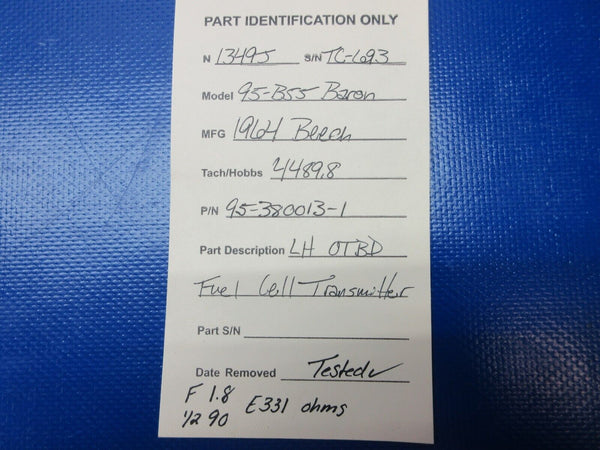 PART IDENTIFICATION ONLY
N 1349J S/N TC-693
Model 95-B55 Baron
MFG 1964 Beech
Tach/Hobbs 4489.8
P/N 95-380013-1
Part Description LH OTBD
Fuel Cell Transmitter
Part S/N
Date Removed Tested✓
F 1.8
E331 ohms
1/2 90